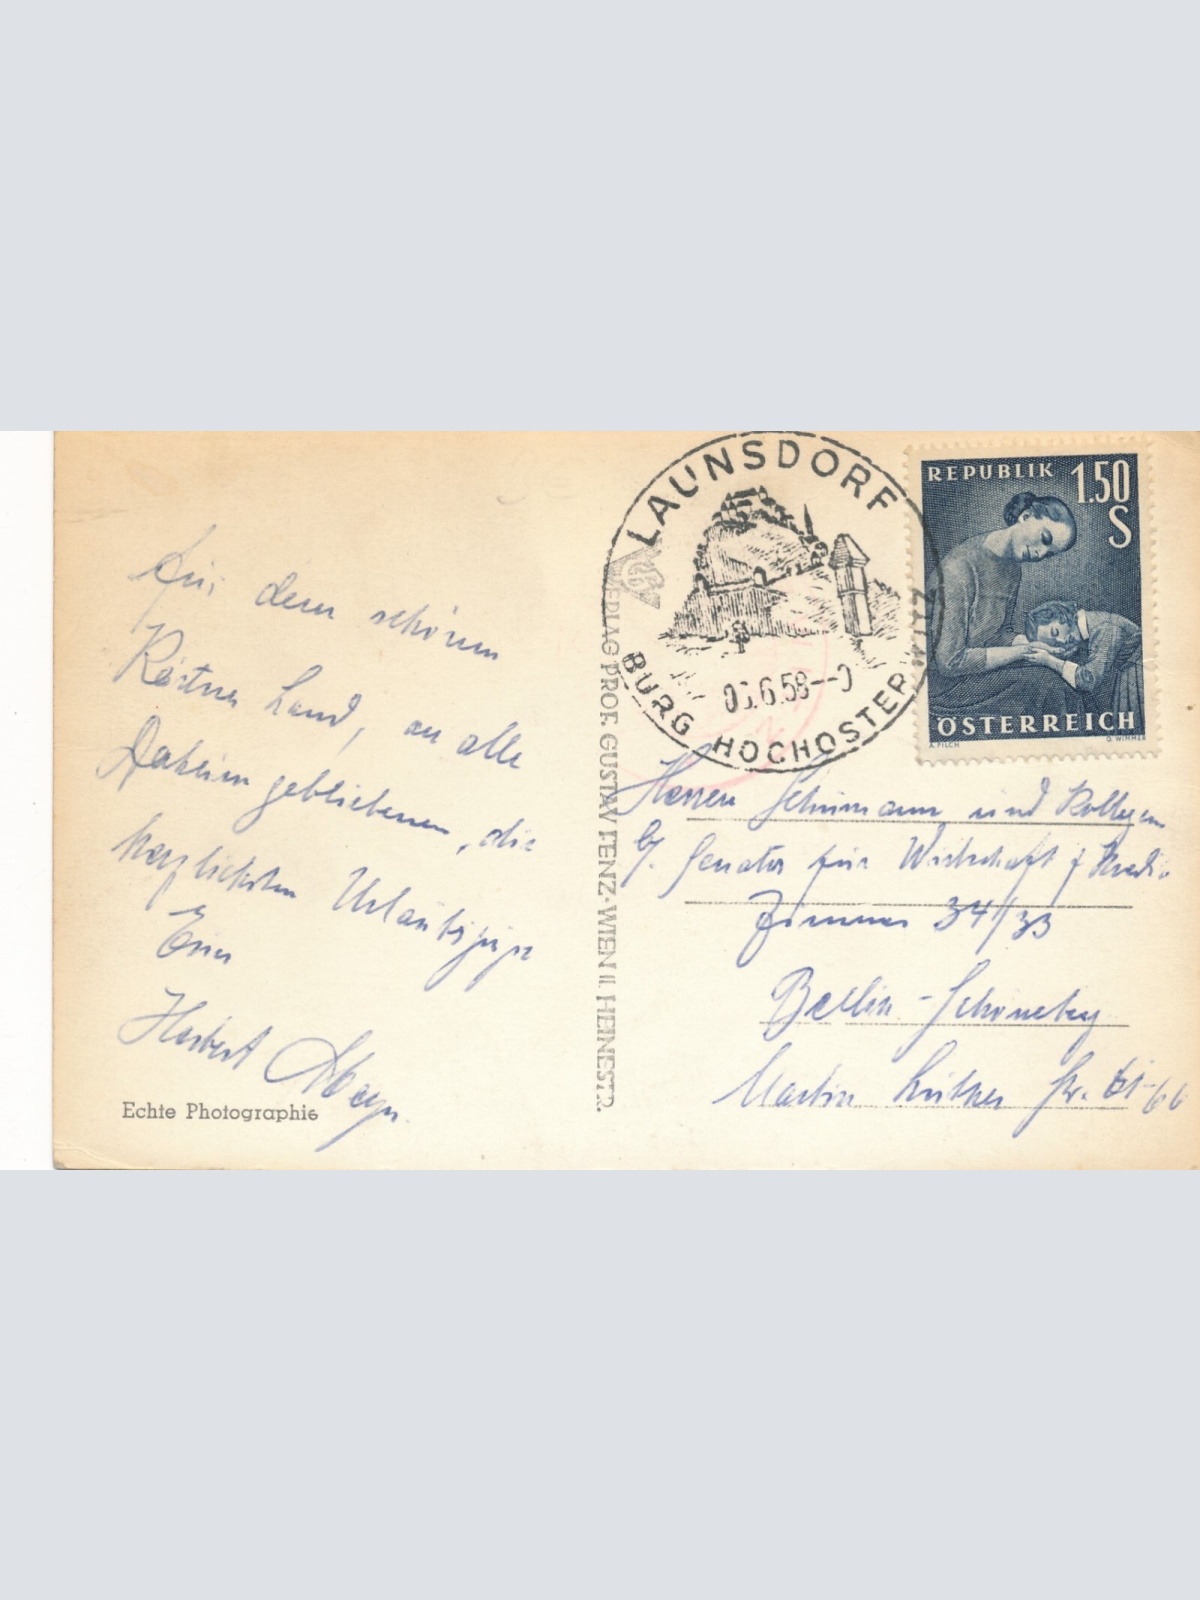 Aus dem schönen
Kärtner Land, an alle
Daheim gebliebenen, die
herzlichsten Urlaubsgrüße
Euer
Herbert
Echte Photographie
VERLAG PROF. GUSTAV FENZ-WIEN II. HEINESTR.
LAUNSDORF
6.58
BURG HOCHOSTERWITZ
REPUBLIK 1.50
S
ÖSTERREICH
A. PILCH
G. WIMMER
Herren Schumann und Kollegen
b/. Senator für Wirtschaft
Zimmer 34/33
Berlin-Schöneberg
Martin Luther Str. 61-66